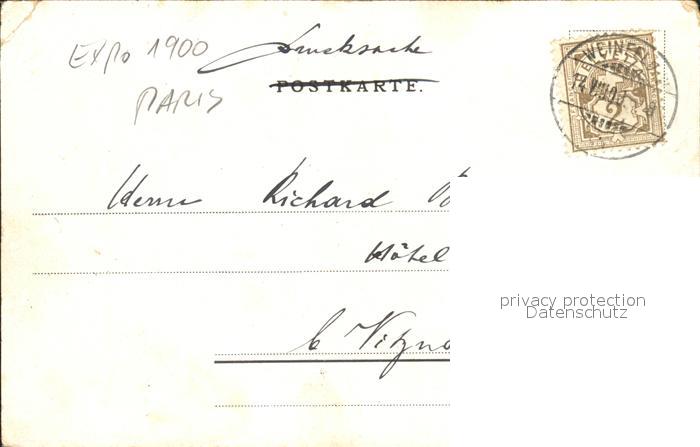 EXPO 1900
PARIS
Drucksache
POSTKARTE.
WEINFE
2
Herrn Richard
Hôtel
b Vitzna
privacy protection
Datenschutz